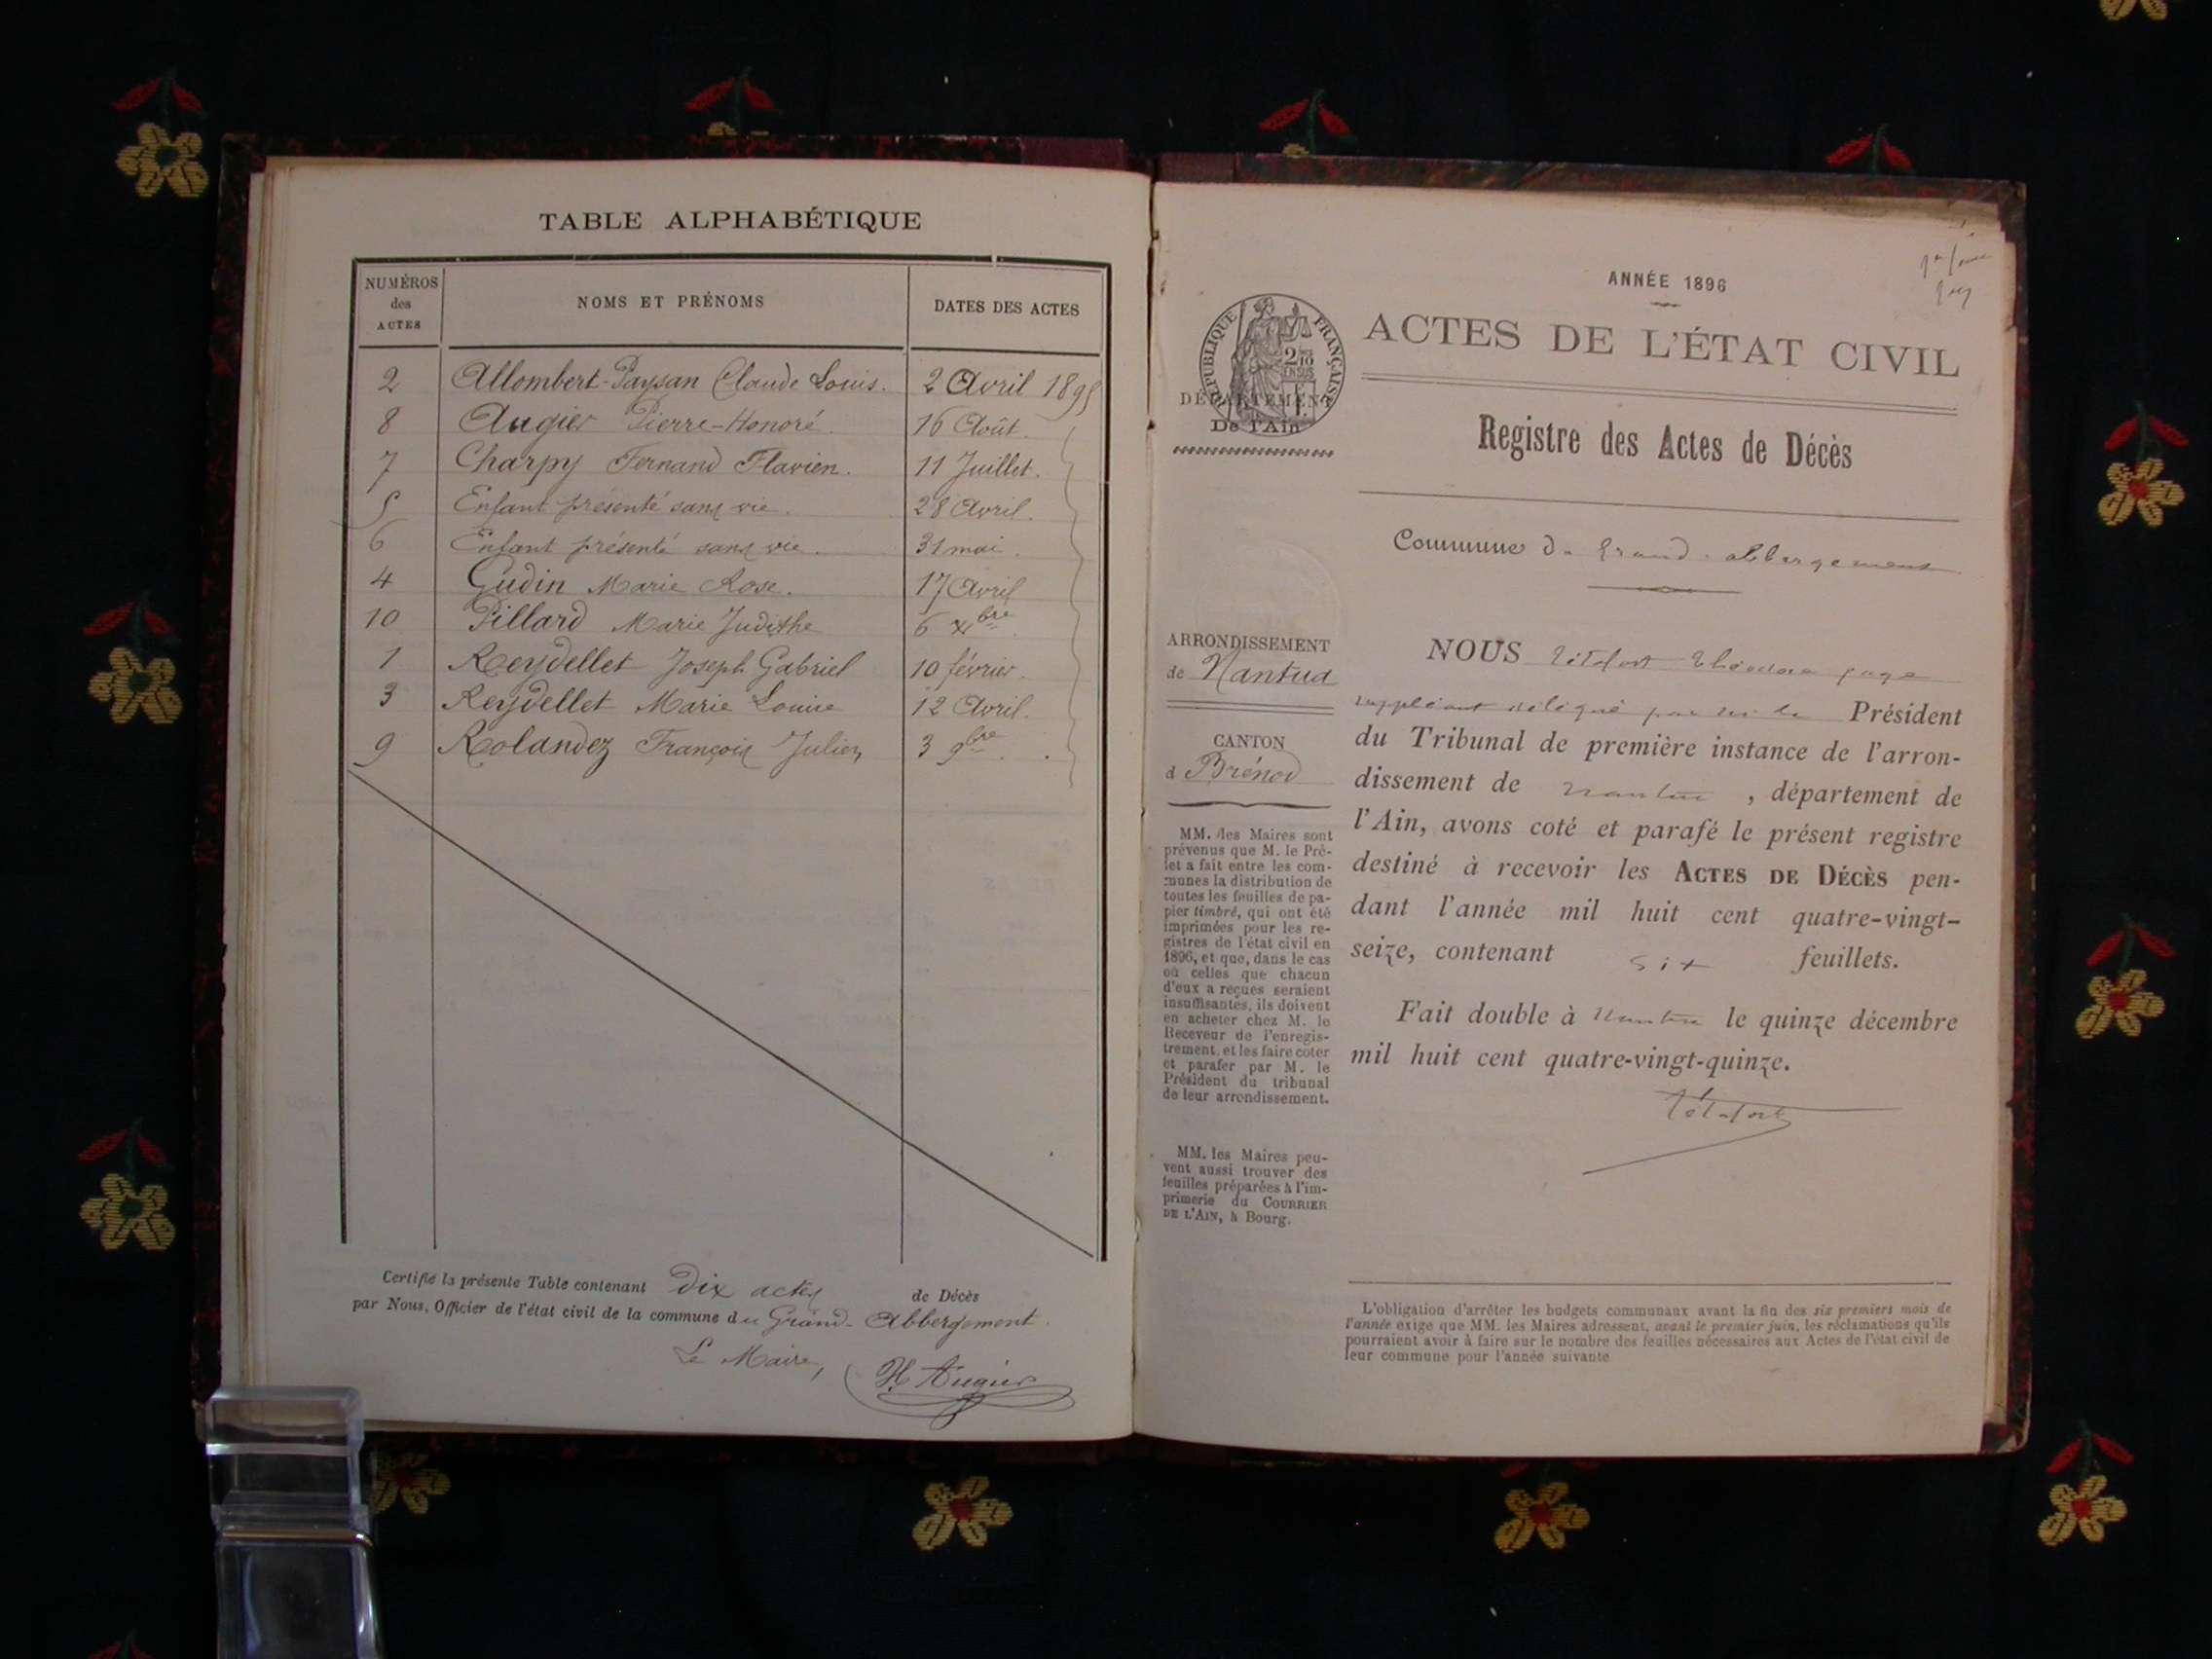 TABLE ALPHABÉTIQUE
NUMÉROS des ACTES | NOMS ET PRÉNOMS | DATES DES ACTES
2 Allombert-Paysan Claude Louis. 2 Avril 1895
8 Augier Pierre-Honoré. 16 Août.
7 Charpy Fernand Flavien. 11 Juillet.
5 Enfant présenté sans vie. 28 Avril.
6 Enfant présenté sans vie. 31 mai.
4 Gudin Marie Rose. 17 Avril
10 Pillard Marie Judithe 6 xbre
1 Reydellet Joseph Gabriel 10 février.
3 Reydellet Marie Louise 12 Avril.
9 Rolandez François Julien 3 9bre.
Certifié la présente Table contenant Dix actes de Décès
par Nous, Officier de l'état civil de la commune du Grand-Abbergement.
Le Maire,
H Augier
ANNÉE 1896
RÉPUBLIQUE FRANÇAISE
2/10 EN SUS
DÉPARTEMENT
De l'Ain
ACTES DE L'ÉTAT CIVIL
Registre des Actes de Décès
Commune de Grand-abbergement
ARRONDISSEMENT
de Nantua
CANTON
d Brénod
MM. les Maires sont
prévenus que M. le Pré-
fet a fait entre les com-
munes la distribution de
toutes les feuilles de pa-
pier timbré, qui ont été
imprimées pour les re-
gistres de l'état civil en
1896, et que, dans le cas
où celles que chacun
d'eux a reçues seraient
insuffisantes, ils doivent
en acheter chez M. le
Receveur de l'enregis-
trement, et les faire coter
et parafer par M. le
Président du tribunal
de leur arrondissement.
MM. les Maires peu-
vent aussi trouver des
feuilles préparées à l'im-
primerie du COURRIER
DE L'AIN, à Bourg.
NOUS juge
suppléant délégué par Président
du Tribunal de première instance de l'arron-
dissement de Nantua, département de
l'Ain, avons coté et parafé le présent registre
destiné à recevoir les ACTES DE DÉCÈS pen-
dant l'année mil huit cent quatre-vingt-
seize, contenant six feuillets.
Fait double à Nantua le quinze décembre
mil huit cent quatre-vingt-quinze.
L'obligation d'arrêter les budgets communaux avant la fin des six premiers mois de
l'année exige que MM. les Maires adressent, avant le premier juin, les réclamations qu'ils
pourraient avoir à faire sur le nombre des feuilles nécessaires aux Actes de l'état civil de
leur commune pour l'année suivante